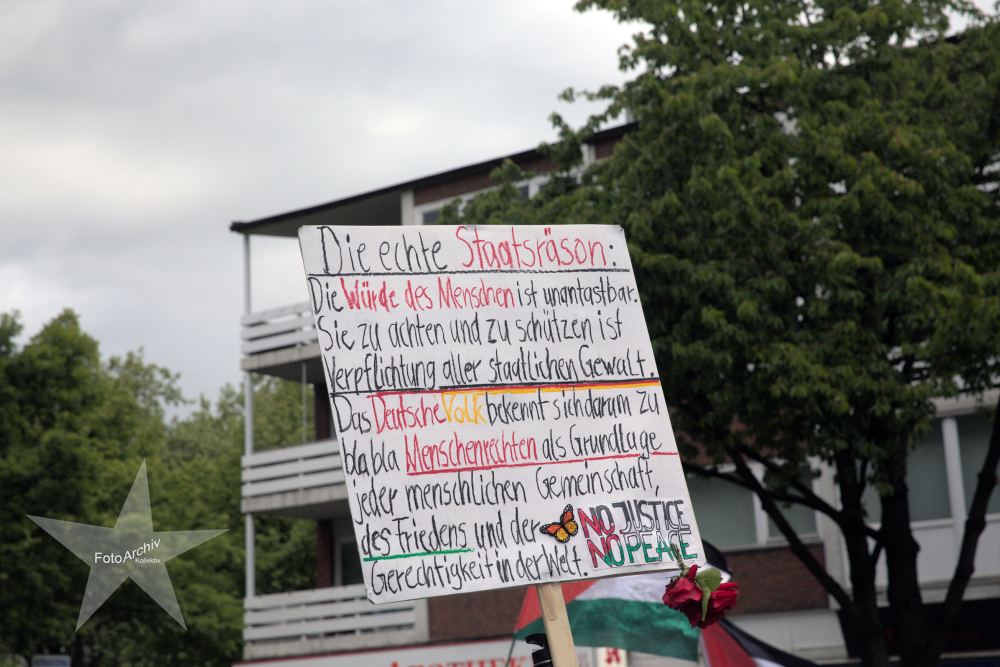 Die echte Staatsräson:
Die Würde des Menschen ist unantastbar.
Sie zu achten und zu schützen ist
Verpflichtung aller staatlichen Gewalt.
Das Deutsche Volk bekennt sich darum zu
blabla Menschenrechten als Grundlage
jeder menschlichen Gemeinschaft,
des Friedens und der
Gerechtigkeit in der Welt.
NO JUSTICE
NO PEACE
FotoArchiv
Kollektiv
APOTHEK